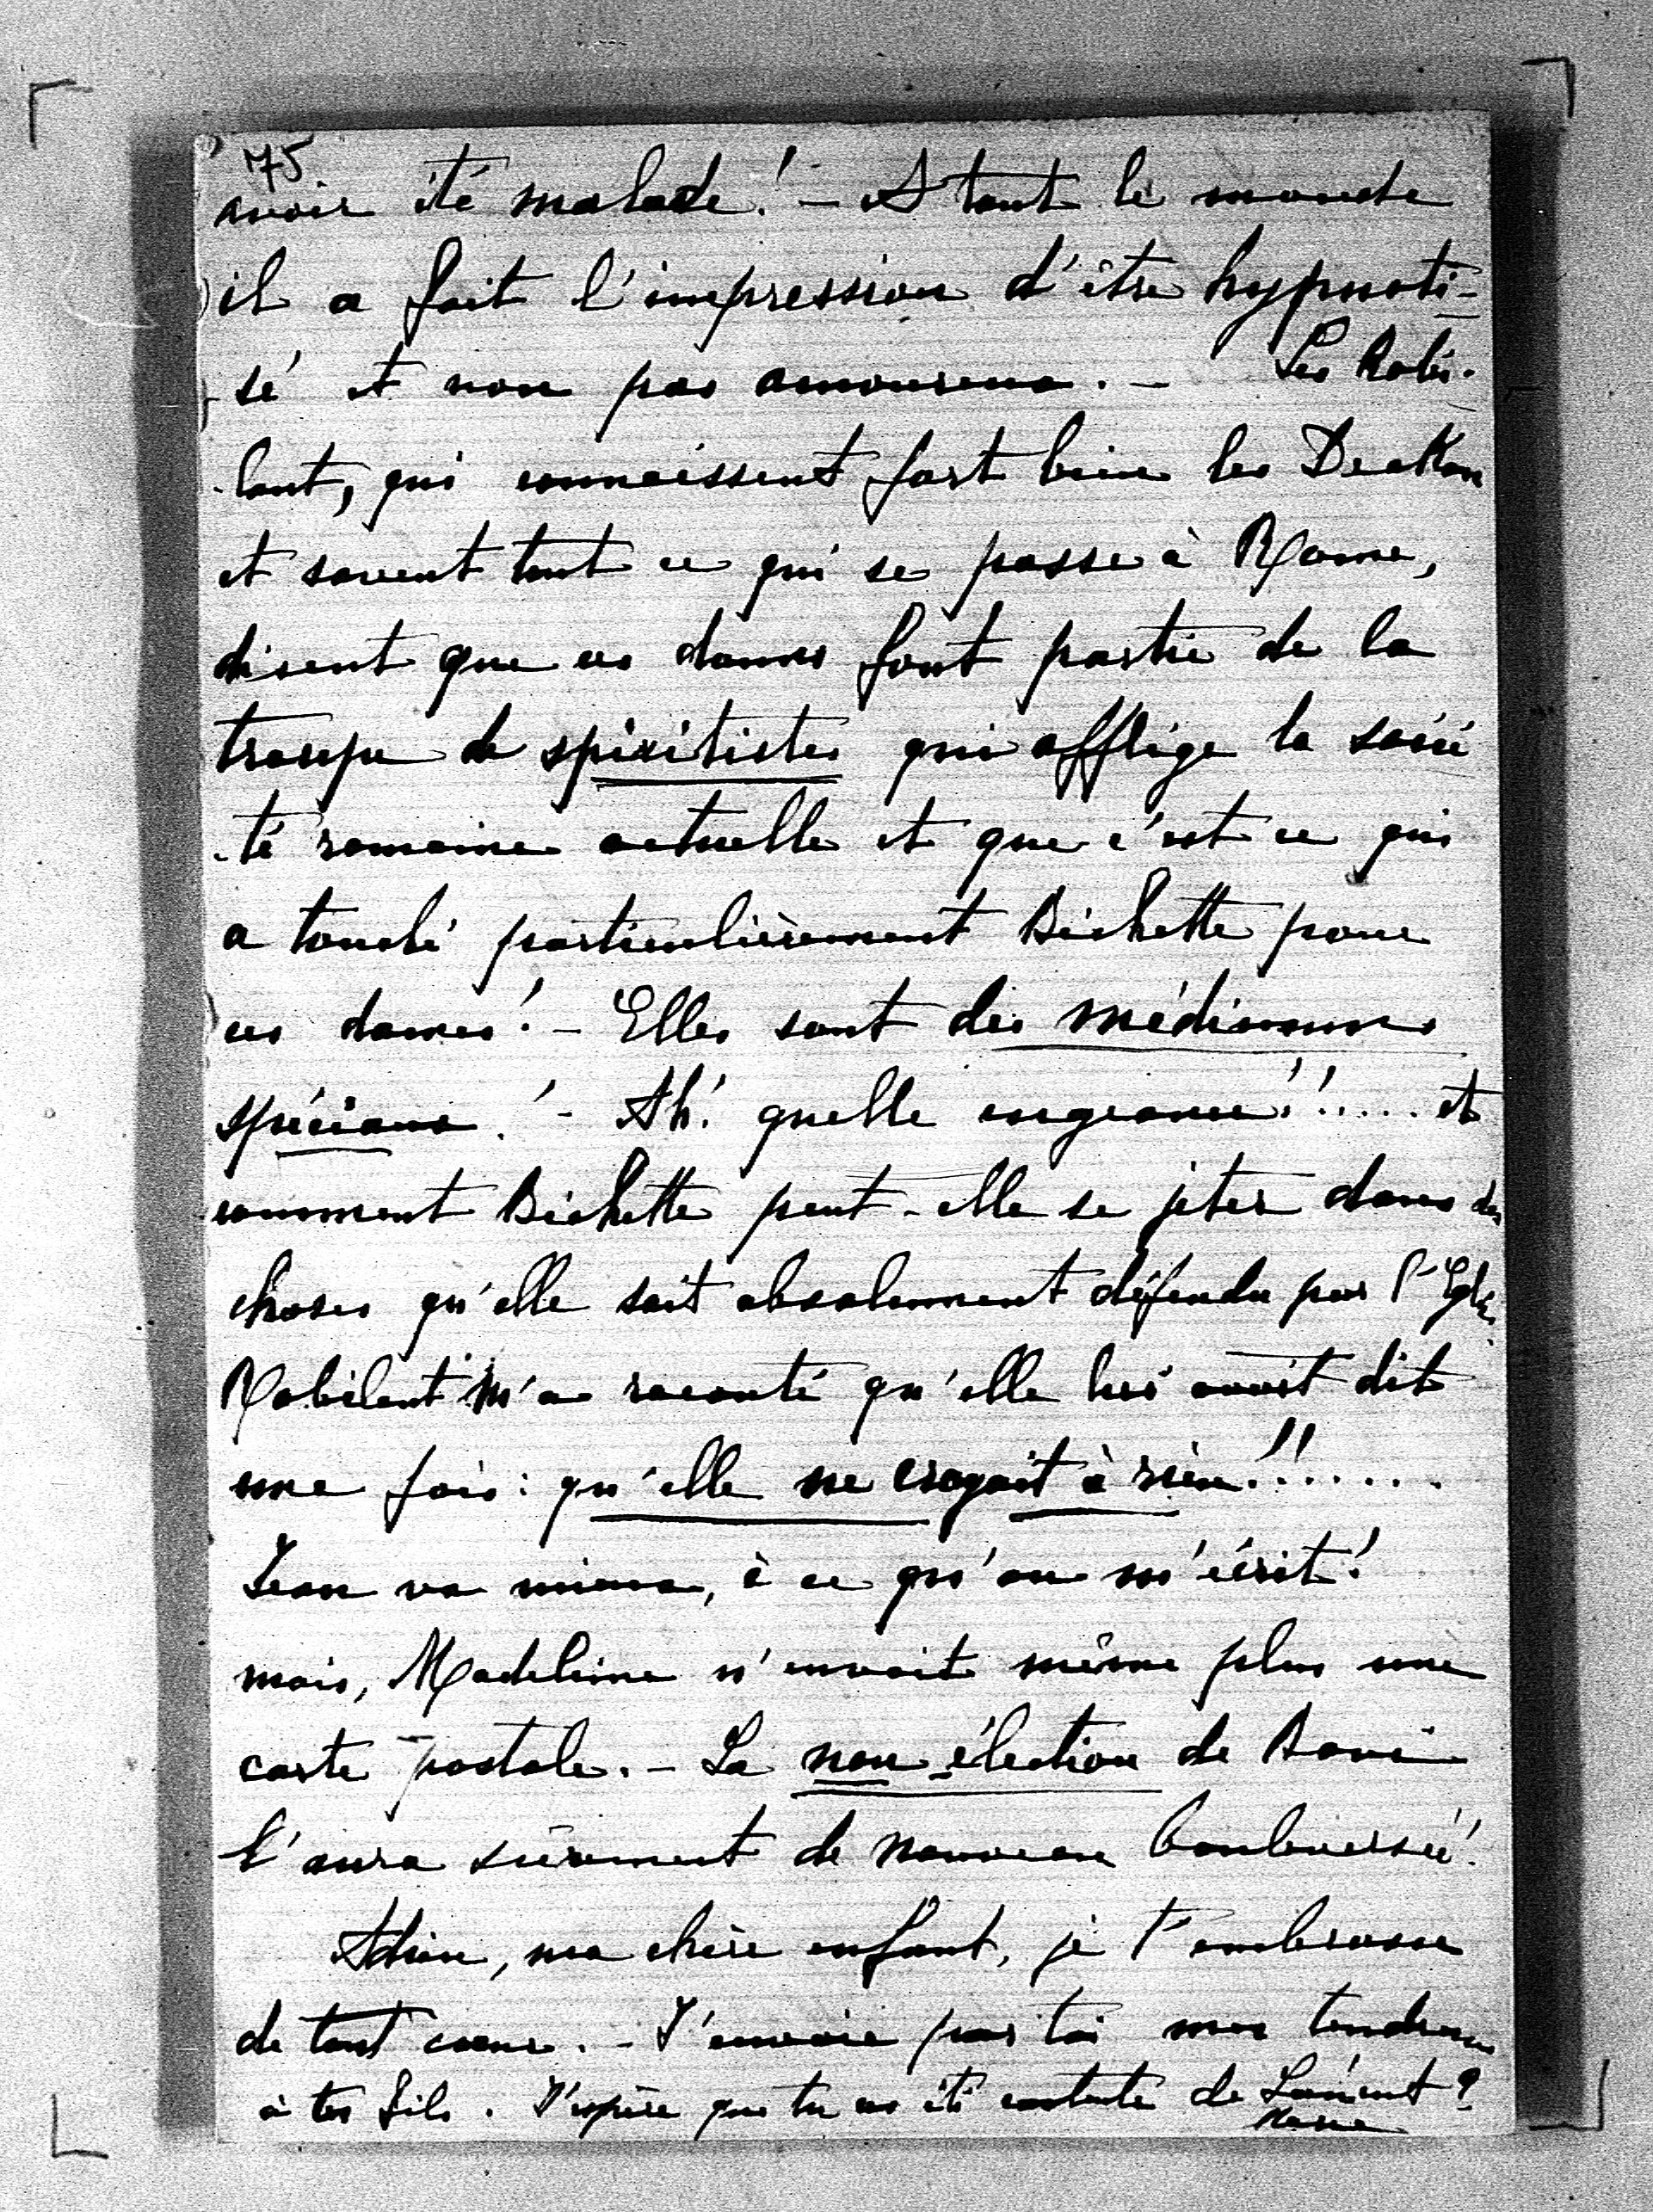 75
avoir été malade! – A tout le monde
il a fait l'impression d'être hypnoti-
sé et non pas amoureux. – Les Robi-
lant, qui connaissent fort bien les
et savent tout ce qui se passe à Rome,
disent que ces dames font partie de la
troupe de spiritistes qui afflige la socié
-té romaine actuelle et que c'est ce qui
a touché particulièrement Bichette pour
ces dames! – Elles sont des médiums
spéciaux! – Ah! quelle engeance!!..... et
comment Bichette peut-elle se jeter dans des
choses qu'elle sait absolument défendu par l'Église.
Robilant m'a raconté qu'elle lui avait dit
une fois: qu'elle ne croyait à rien!!......
Jean va mieux, à ce qu'on m'écrit!
mais, Madeleine n'envoit même plus une
carte postale. – La non-élection de
l'aura sûrement de nouveau bouleversée!
Adieu, ma chère enfant, je t'embrasse
de tout cœur. – J'envoie par toi mes tendresses
à tes fils. J'espère que tu as été contente de ?